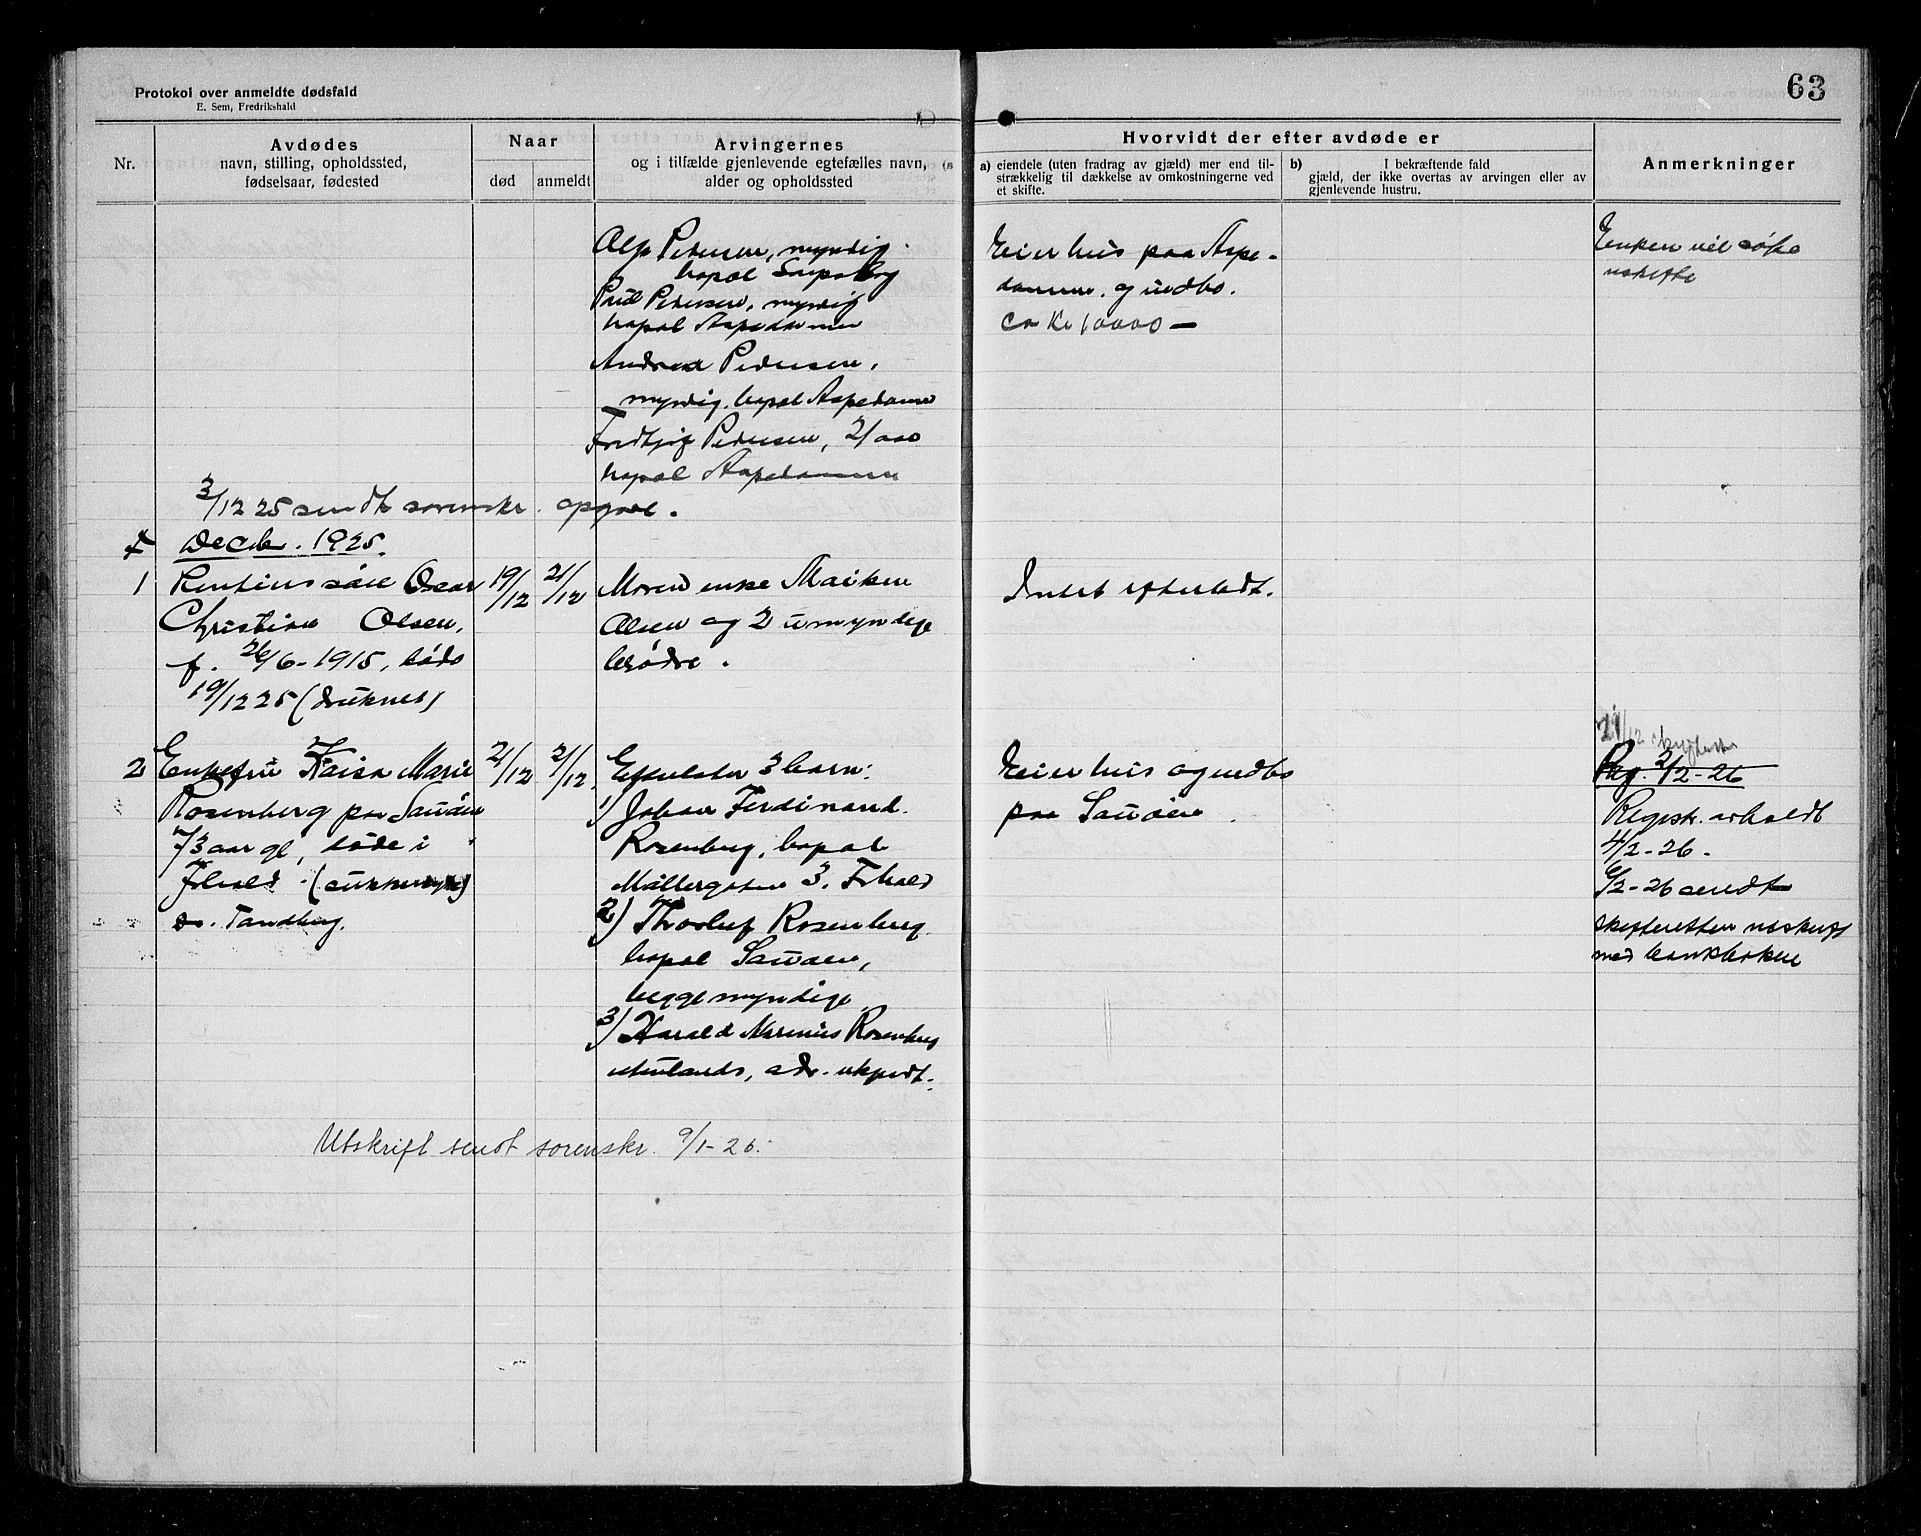 63
Protokol over anmeldte dødsfald
E. Sem, Fredrikshald
Nr.
Avdødes
navn, stilling, opholdssted,
fødselsaar, fødested
Naar
død
anmeldt
Arvingernes
og i tilfælde gjenlevende egtefælles navn,
alder og opholdssted
Hvorvidt der efter avdøde er
a) eiendele (uten fradrag av gjæld) mer end til-
strækkelig til dækkelse av omkostningerne ved
et skifte.
b) I bekræftende fald
gjæld, der ikke overtas av arvingen eller av
gjenlevende hustru.
Anmerkninger
Pedersen, myndig
bopæl Sarpsborg
Pedersen, myndig
bopæl Aspedammen
Andrea Pedersen,
myndig, bopæl Aspedammen
Fredtjof Pedersen, 21 aar
bopæl Aspedammen
Eier hus paa Aspe-
dammen og indbo.
ca Kr 10000 —
Enken vil søke
uskifte
3/12 25 sendt sorenskr. opgave.
Decbr. 1925.
1
Oscar
Christian Olsen,
f. 26/6-1915, døde
19/12 25 (druknet)
19/12
21/12
Moren enke Maiken
Olsen og 2 umyndige
brødre.
Intet efterladt.
2
Enkefru Kaisa Marie
Rosenberg paa Sauøen
73 aar gl, døde i
Fr.hald (sukkersyke)
dr. Tandberg.
21/12
21/12
Efterlater 3 barn:
1) Johan Ferdinand
Rosenberg, bopæl
Møllergaten 3, Fr.hald
2) Thorleif Rosenberg
bopæl Sauøen,
begge myndige
3) Harald Marinius Rosenberg
utenlands, adr. ukjendt.
Eier hus og indbo
paa Sauøen
21/12
Reg. 2/2-26
Registr. avholdt
4/2-26.
6/2-26 sendt
skifteretten utskrift
med bankboken
Utskrift sendt sorenskr. 9/1-26.